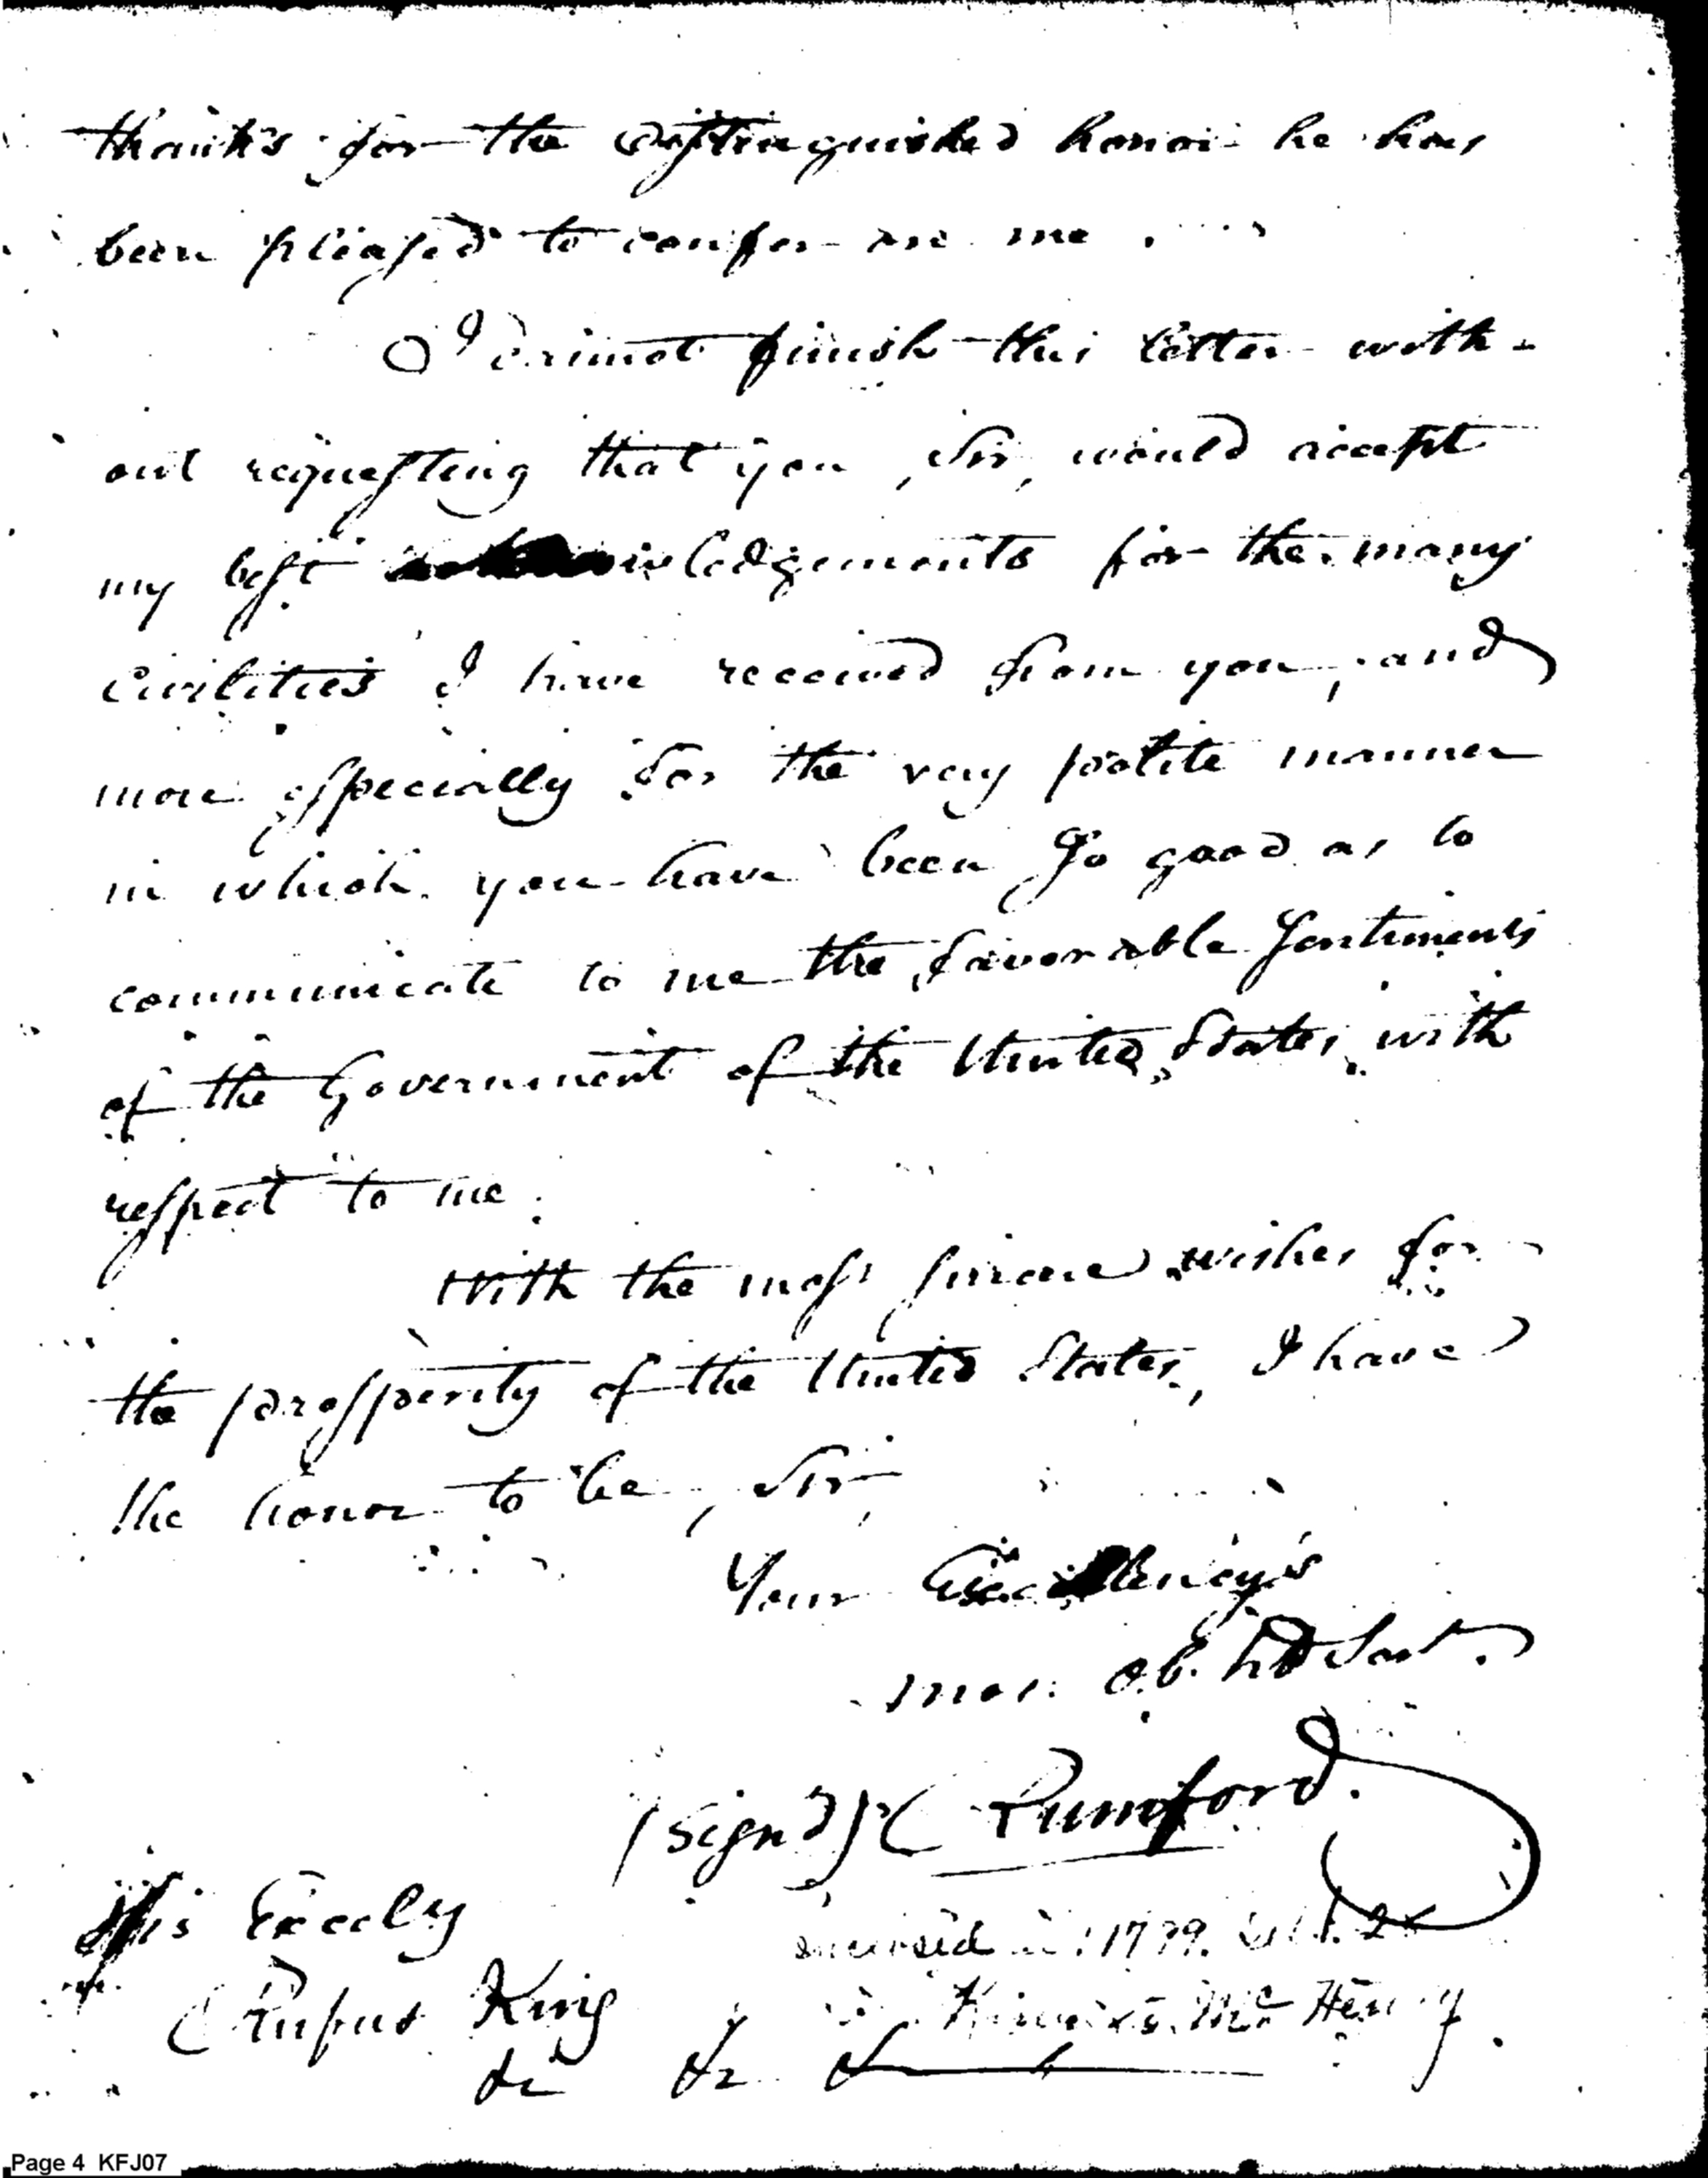 thanks for the distinguished honor he has
been pleased to confer on me.
I cannot finish this letter with-
out requesting that you, Sir, would accept
my best acknowledgements for the many
civilities I have received from you, and
more especially for the very polite manner
in which you have been so good as to
communicate to me the favorable sentiments
of the Government of the United States with
respect to me.
With the most sincere wishes for
the prosperity of the United States, I have
the honor to be, Sir,
Your Excellency's
most ob. hd Sert.
(Sign'd) Rumford.
His Excely
Rufus King
&c &c &c
1799.
King Mc Henry
Page 4 KFJ07